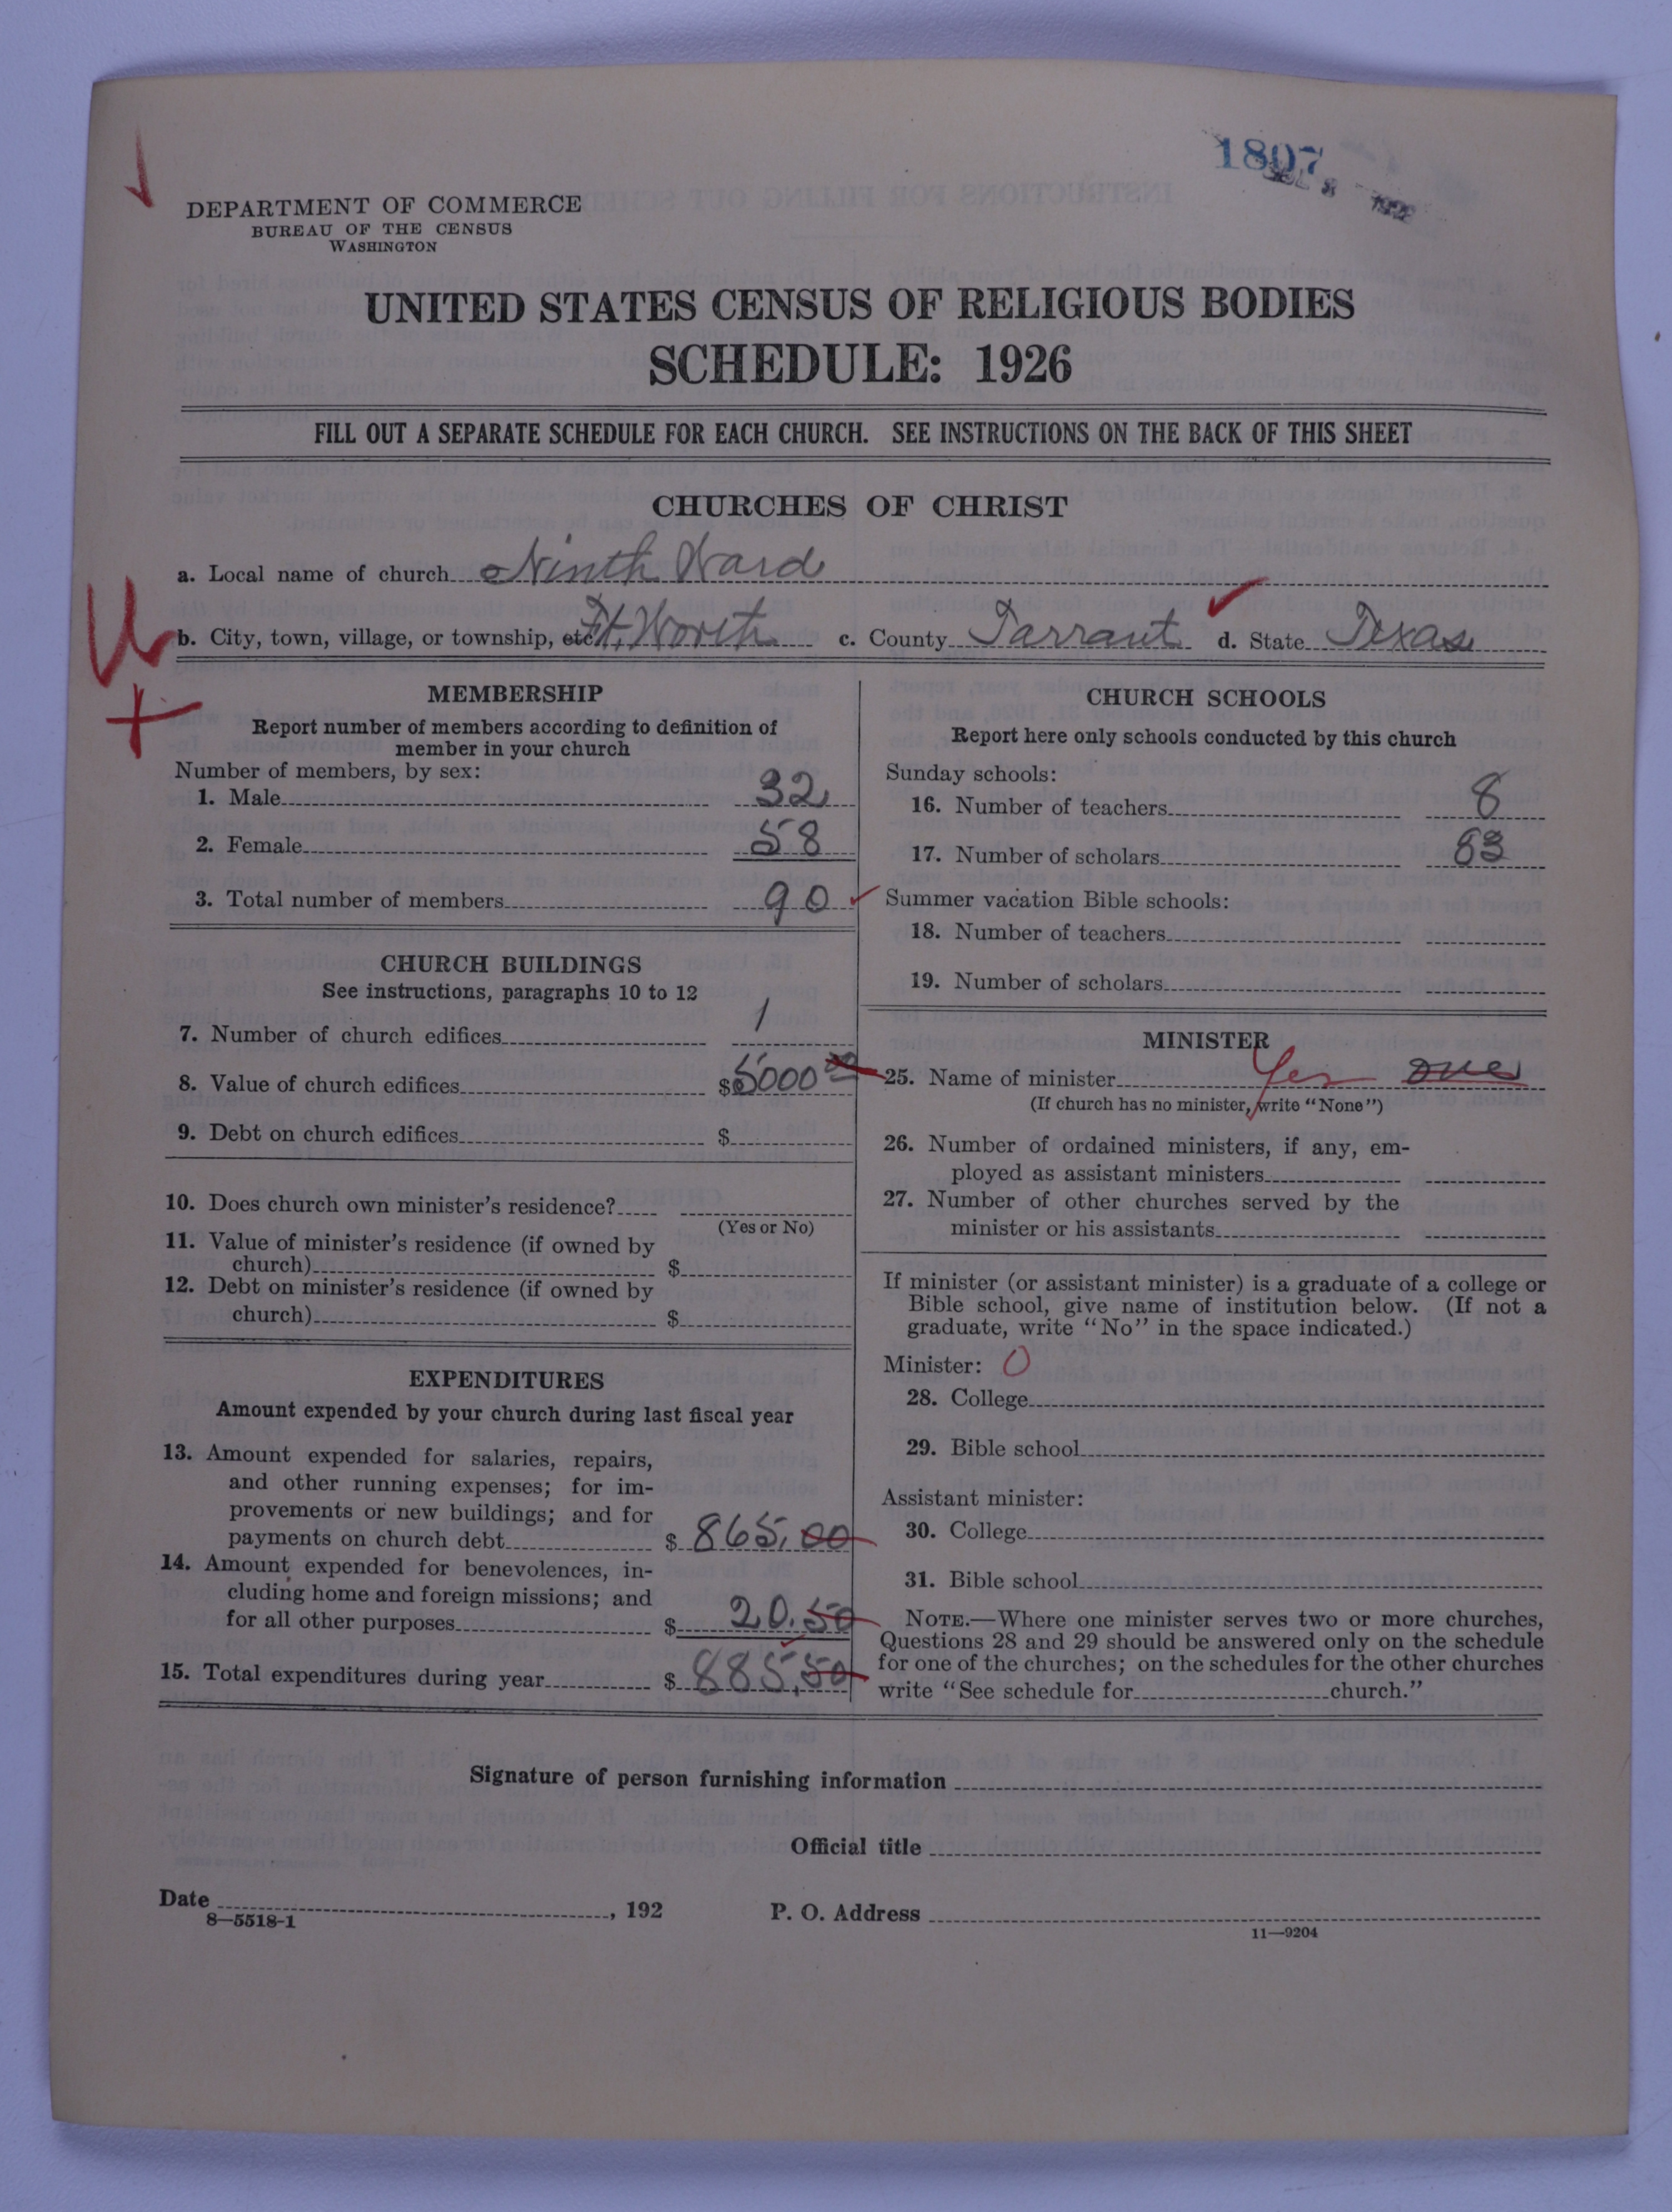 1807
DEPARTMENT OF COMMERCE
BUREAU OF THE CENSUS
WASHINGTON
UNITED STATES CENSUS OF RELIGIOUS BODIES
SCHEDULE: 1926
FILL OUT A SEPARATE SCHEDULE FOR EACH CHURCH. SEE INSTRUCTIONS ON THE BACK OF THIS SHEET
CHURCHES OF CHRIST
a. Local name of church Ninth Ward
b. City, town, village, or township, etc. Ft. Worth c. County Tarrant d. State Texas
MEMBERSHIP
Report number of members according to definition of
member in your church
Number of members, by sex:
1. Male 32
2. Female 58
3. Total number of members 90
CHURCH BUILDINGS
See instructions, paragraphs 10 to 12
7. Number of church edifices 1
8. Value of church edifices $5000 00
9. Debt on church edifices $
10. Does church own minister's residence?
(Yes or No)
11. Value of minister's residence (if owned by
church) $
12. Debt on minister's residence (if owned by
church) $
EXPENDITURES
Amount expended by your church during last fiscal year
13. Amount expended for salaries, repairs,
and other running expenses; for im-
provements or new buildings; and for
payments on church debt $ 865.00
14. Amount expended for benevolences, in-
cluding home and foreign missions; and
for all other purposes $ 20.50
15. Total expenditures during year $ 885.50
CHURCH SCHOOLS
Report here only schools conducted by this church
Sunday schools:
16. Number of teachers 8
17. Number of scholars 83
Summer vacation Bible schools:
18. Number of teachers
19. Number of scholars
MINISTER
25. Name of minister Yes one
(If church has no minister, write "None")
26. Number of ordained ministers, if any, em-
ployed as assistant ministers
27. Number of other churches served by the
minister or his assistants
If minister (or assistant minister) is a graduate of a college or
Bible school, give name of institution below. (If not a
graduate, write "No" in the space indicated.)
Minister: O
28. College
29. Bible school
Assistant minister:
30. College
31. Bible school
NOTE.—Where one minister serves two or more churches,
Questions 28 and 29 should be answered only on the schedule
for one of the churches; on the schedules for the other churches
write "See schedule for church."
Signature of person furnishing information
Official title
Date , 192 P. O. Address
8—5518-1
11—9204